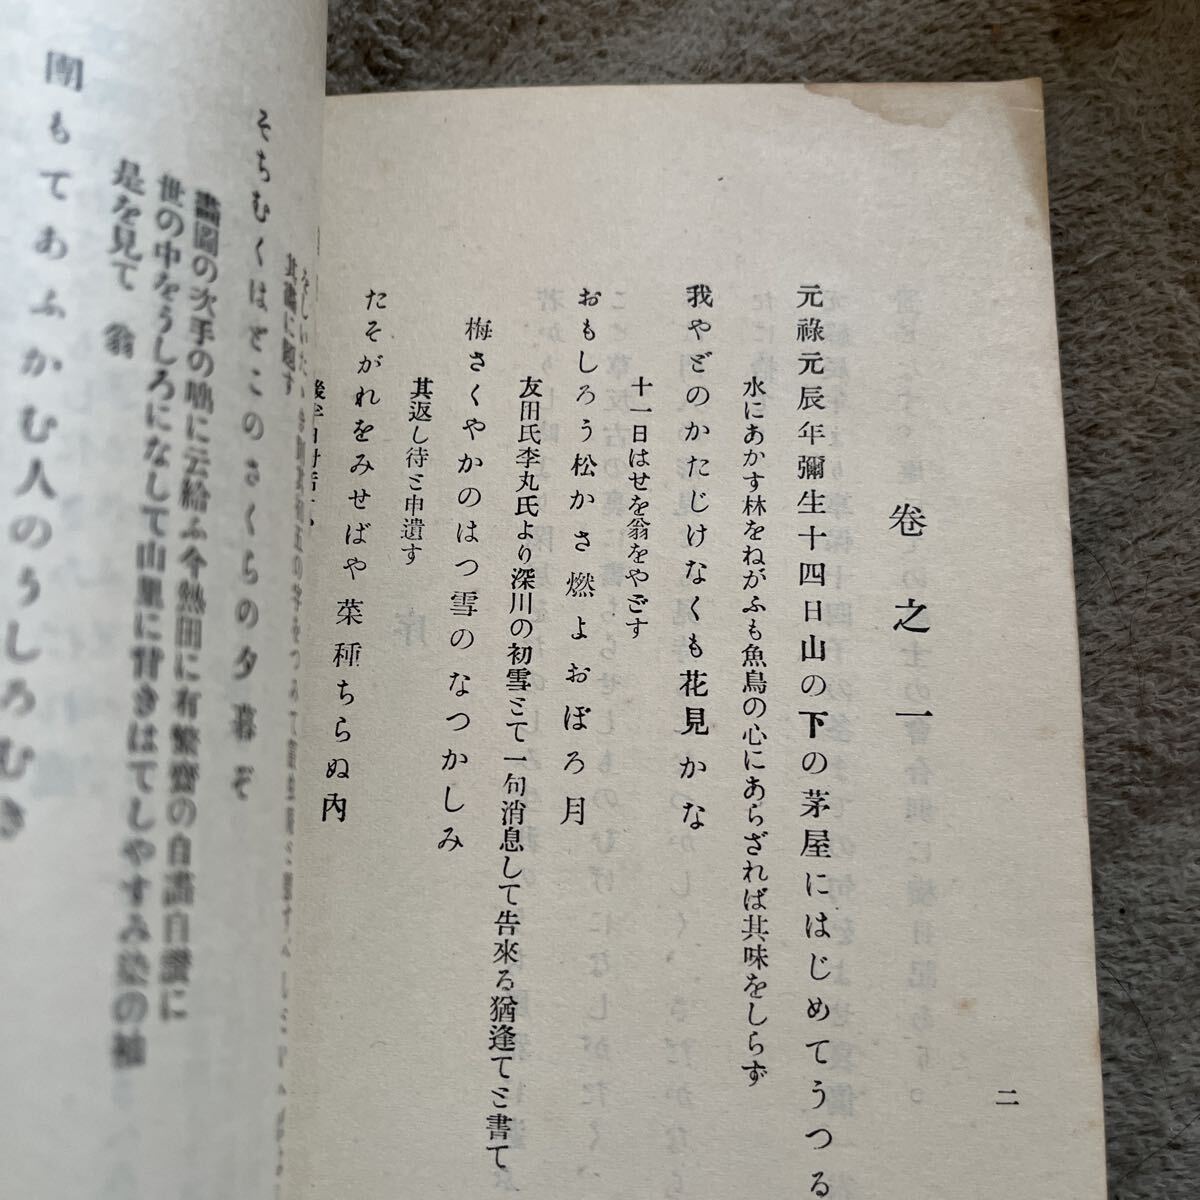 卷之一
元祿元辰年彌生十四日山の下の茅屋にはじめてうつる
水にあかす林をねがふも魚鳥の心にあらざれば其味をしらず
我やどのかたじけなくも花見かな
十一日はせを翁をやごす
おもしろう松かさ燃よおぼろ月
友田氏李丸氏より深川の初雪ミて一句消息して告來る猶逢てミ書て
梅さくやかのはつ雪のなつかしみ
其返し待ミ申遺す
たそがれをみせばや菜種ちらぬ內
二
そちむくはどこのさくらの夕暮ぞ
畵圖の次手の咄に云給ふ今熱田に有繁齋の自畵自讃に
世の中をうしろになして山里に背きはてしやすみ染の袖
是を見て 翁
團もてあふがむ人のうしろむき